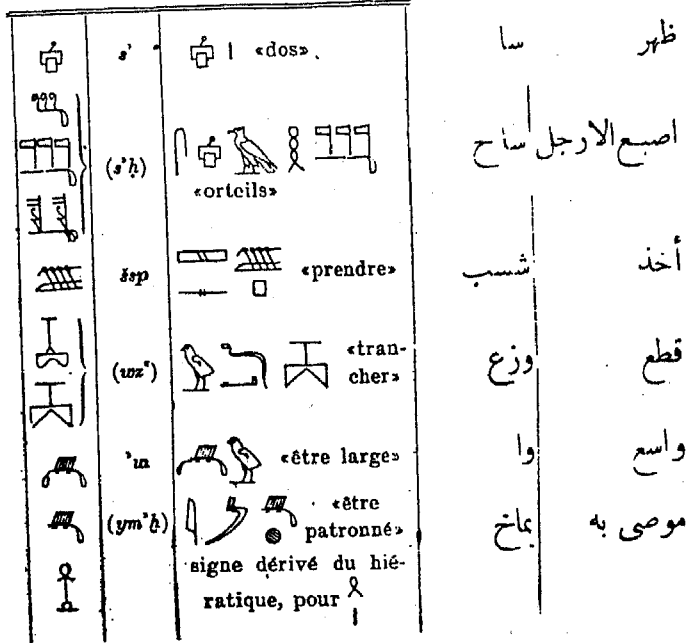 sʾ «dos». سا ظهر
(sʾḥ) «orteils» ساح اصبع الارجل
šsp «prendre» شسب أخذ
(wzʿ) «tran-
cher» وزع قطع
ʾw «être large» وا واسع
(ymʾḫ) «être
patronné» يماخ موصى به
signe dérivé du hié-
ratique, pour